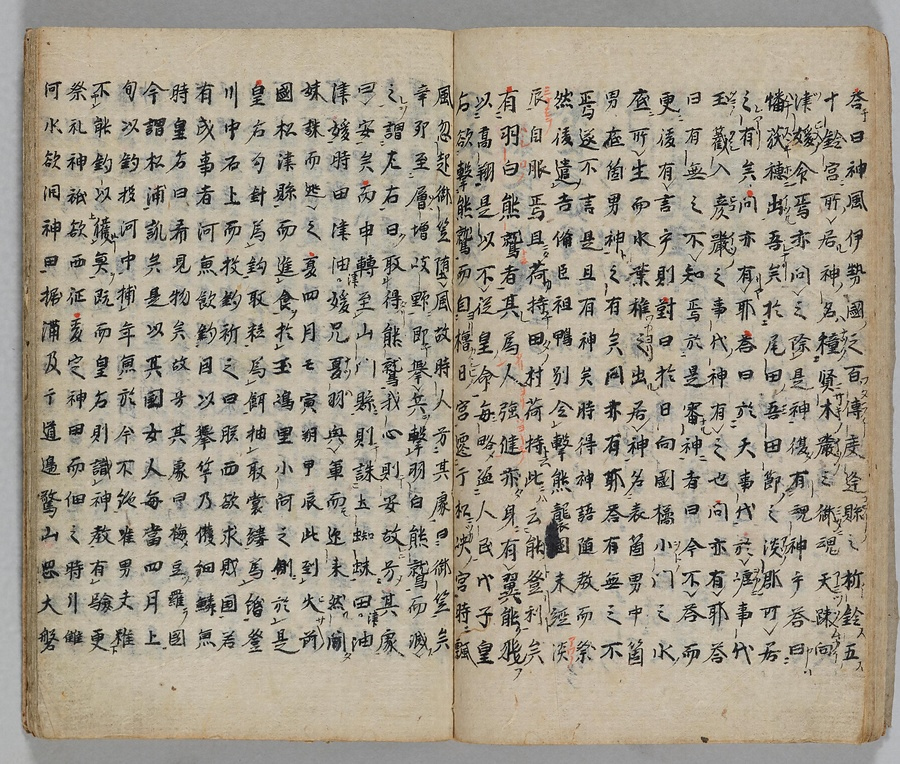 答曰神風伊勢國之百傳度逢縣之栴鈴五
十鈴宮所居神名種賢木嚴之御魂天疎向
津媛命焉亦問之除是神復有神乎答曰
幡荻穗出吾矣於尾田吾田節之淡郡所居
之有矣問亦有耶答曰於天事代於虛事代
玉籤入彥嚴之事代神有之也問亦有耶答
曰有無之不知焉於是審神者曰今不答而
更後有言乎則對曰於日向國橘小門之水
底所生而水葉稚之出居神名表筒男中筒
男底筒男神之有矣問亦有耶答曰有無之不
焉遂不言是且有神矣時得神語随教而祭
然後遣吉備臣祖鴨別令擊熊襲國未經浹
辰自服焉且荷持田村荷持此云能登利矣
有羽白熊鷲者其爲人強健亦身有翼能飛
以高翔是以不従皇命每略盜人民戊子皇
后欲擊熊鷲而自橿日宮遷于松峽宮時飄
風忽起御笠墮風故時人号其處曰御笠矣
辛卯至層增岐野即舉兵擊羽白熊鷲而滅
之謂左右曰取得熊鷲我心則安故号其處
曰安矣丙申轉至山門縣則誅土蜘蛛田油
津媛時田津油媛兄夏羽興軍而迎來然聞
妹誅而逃之夏四月壬寅朔甲辰北到火前
國松津縣而進食於玉嶋里小河之側於是
皇后勾針爲鈎取粒爲餌抽取裳縷爲緡登
川中石上而投鈎祈之曰朕西欲求財国若
有成事者河魚飲鈎因以舉竿乃獲細鱗魚
時皇后曰希見物矣故号其處曰梅豆羅国
今謂松浦訛矣是以其國女人每當四月上
旬以鈎投河中捕年魚於今不絶唯男夫雖
不能釣以獲魚既而皇后則識神教有驗更
祭礼神祇欲西征爰定神田而佃之時引儺
河水欲潤神田掘溝及于迹驚山岡大磐